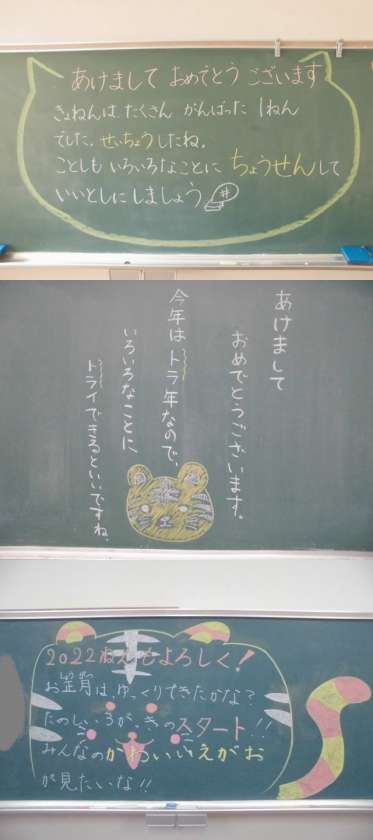 あけまして おめでとう ございます
きょねんは、たくさん がんばった 1ねん
でした。せいちょうしたね。
ことしも いろいろなことに ちょうせんして
いいとしに しましょう
あけまして
おめでとうございます。
今年は トラ年なので、
いろいろなことに
トライできるといいですね。
2022ねんもよろしく!
お正月は、ゆっくりできたかな?
たのしい3がっきのスタート!!
みんなの かわいいえがお
が見たいな!!